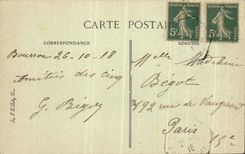 CARTE POSTALE
CORRESPONDANCE
ADRESSE
5c
5c
Bourron 26-10-18
Amitiés des cinq
G. Bégot
Melle Madeleine
Bégot
192 rue de Vaugirard
Paris
15e